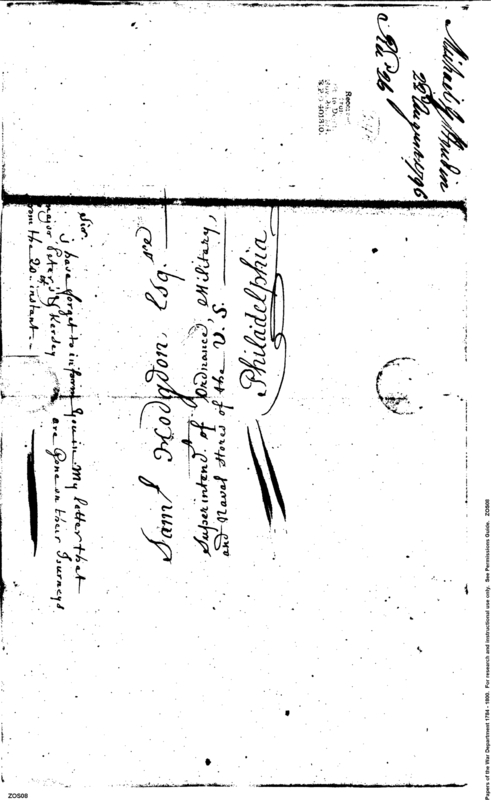 22d August 1796
No. 26
Saml Hodgdon, Esqre
Superintend. of Ordnance, Military,
and Naval Stores of the U. S.
Philadelphia
Sir.
I have forget to inform you in My letter that
major Peters & Kersey are gone on their Journeys
from the 20. instant.
Papers of the War Department 1784 - 1800. For research and instructional use only. See Permissions Guide. ZOS08
ZOS08